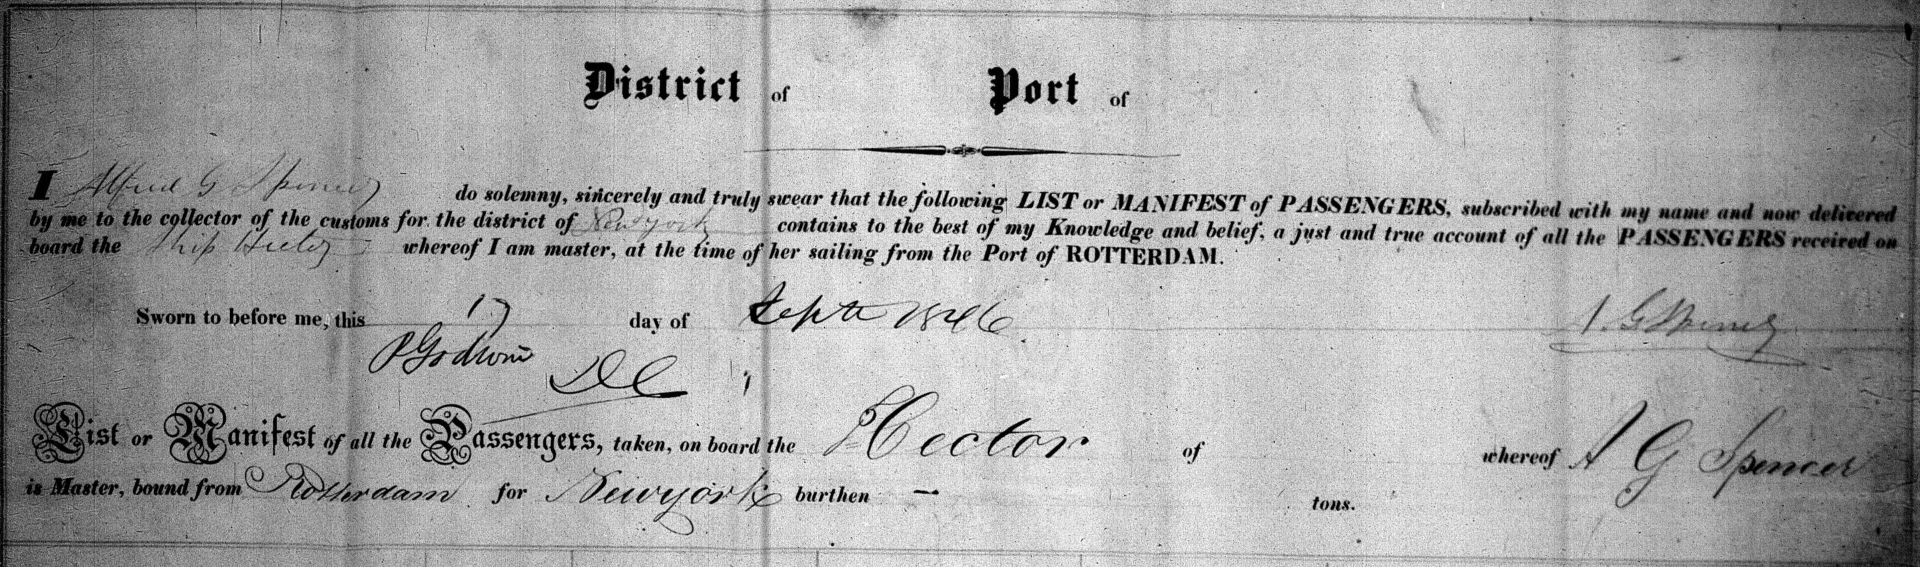 District of Port of
I Alfred G Spencer do solemny, sincerely and truly swear that the following LIST or MANIFEST of PASSENGERS, subscribed with my name and now delivered
by me to the collector of the customs for the district of Newyork contains to the best of my Knowledge and belief, a just and true account of all the PASSENGERS received on
board the Ship Hector whereof I am master, at the time of her sailing from the Port of ROTTERDAM.
Sworn to before me, this 17 day of Septr 1846 A. G Spencer
P Godwin
DC
List or Manifest of all the Passengers, taken, on board the Hector of whereof A G Spencer
is Master, bound from Rotterdam for Newyork burthen — tons.